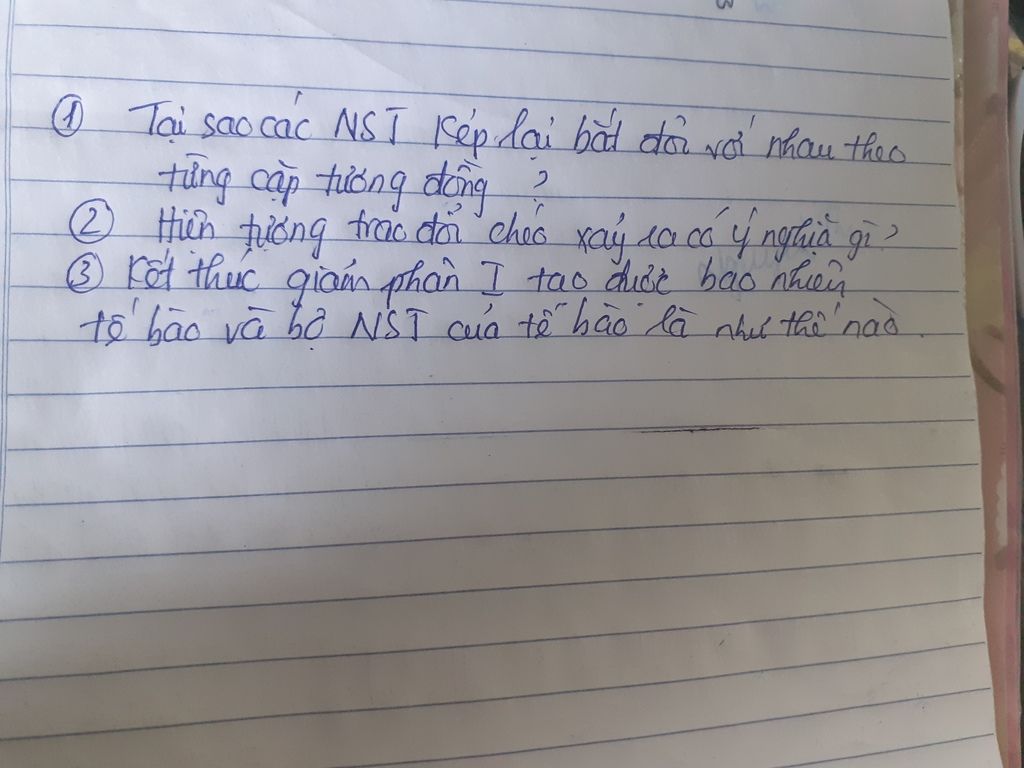 ① Tại sao các NST kép lại bắt đôi với nhau theo
từng cặp tương đồng ?
② Hiện tượng trao đổi chéo xảy ra có ý nghĩa gì?
③ Kết thúc giảm phân I tạo được bao nhiên
tế bào và bộ NST của tế bào là như thế nào.